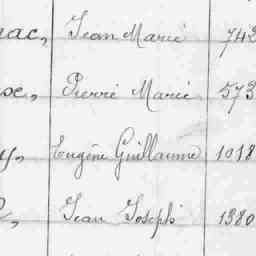 Jean Marie 742
Pierre Marie 573
Eugène Guillaume 1018
Jean Joseph 1380